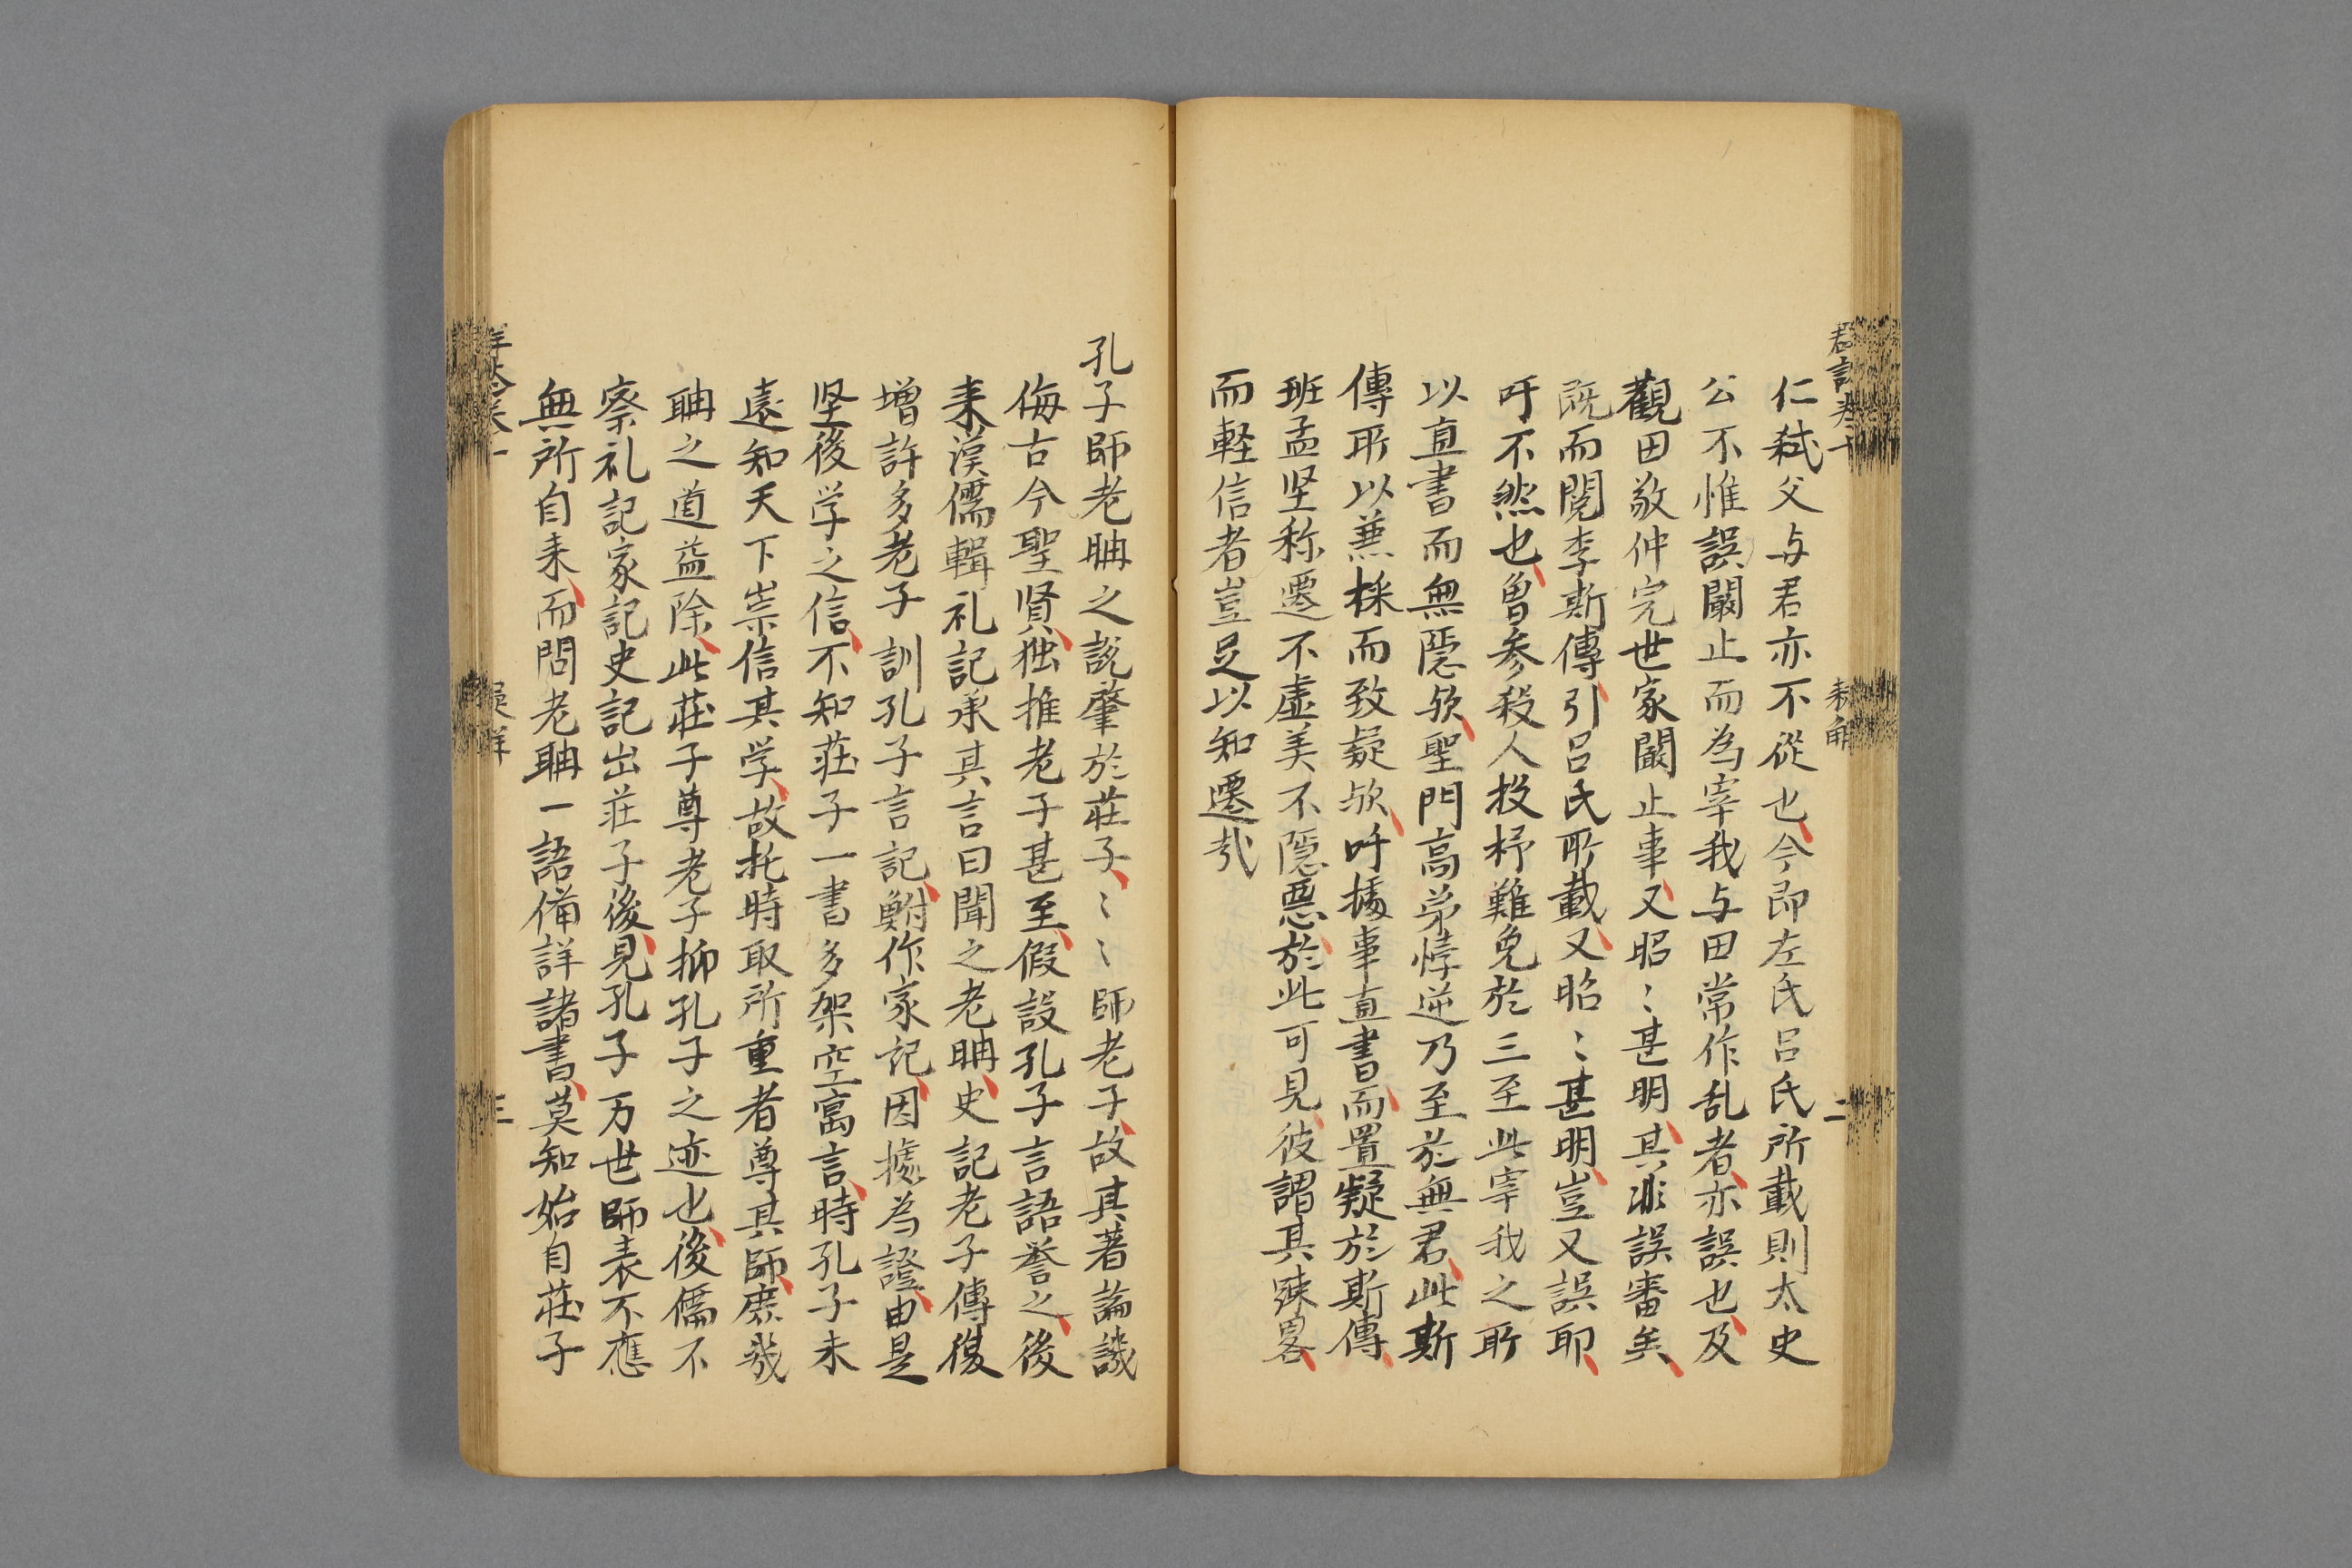 仁弑父与君亦不從也今即左氏呂氏所載則太史
公不惟誤闞止而為宰我与田常作乱者亦誤也及
觀田敬仲完世家闞止事又昭〻甚明其非誤審矣
既而閲李斯傳引呂氏所載又昭〻甚明豈又誤耶
吁不然也曾參殺人投杼難免於三至此宰我之所
以直書而無隠欤聖門高弟悖逆乃至於無君此斯
傳所以兼採而致疑欤吁據事直書而置疑於斯傳
班孟坚称遷不虚美不隠悪於此可見彼謂其踈畧
而軽信者豈足以知遷哉
孔子師老聃之説肇於荘子〻〻師老子故其著論譏
侮古今聖賢独推老子甚至假設孔子言語誉之後
来漢儒輯礼記承其言曰聞之老聃史記老子傳復
増許多老子訓孔子言記鮒作家記因據為證由是
坚後学之信不知荘子一書多架空寓言時孔子未
遠知天下崇信其学故托時取所重者尊其師庶幾
聃之道益除此荘子尊老子抑孔子之迹也後儒不
察礼記家記史記出荘子後見孔子万世師表不應
無所自来而問老聃一語備詳諸書莫知始自荘子
二
三